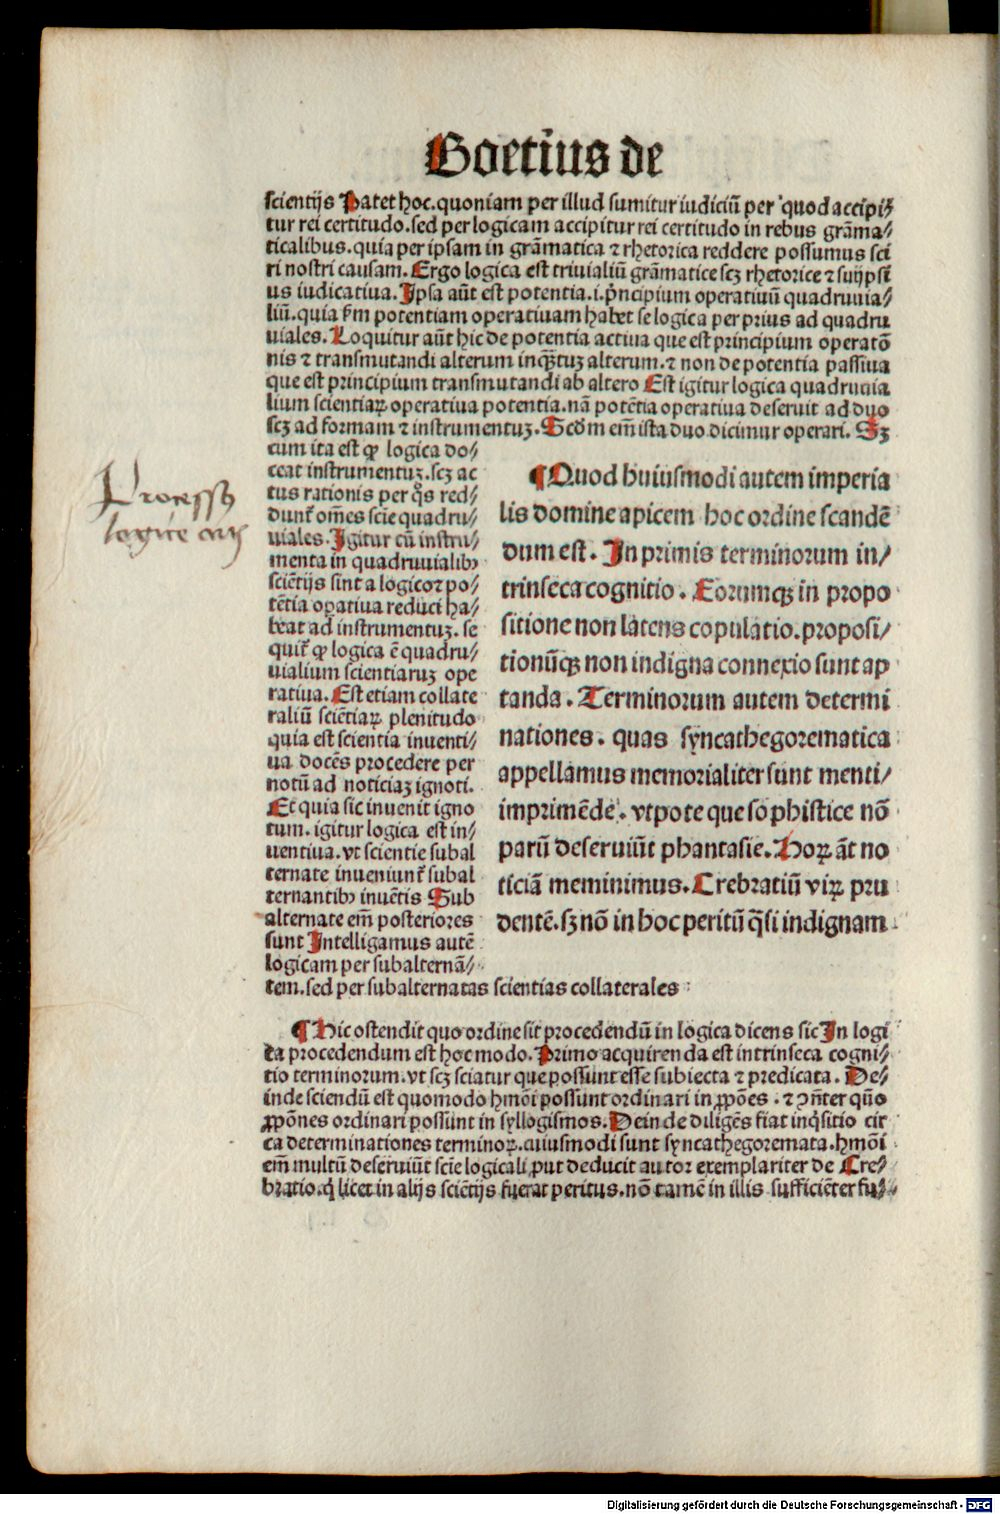 Boetius de
scientijs Patet hoc. quoniam per illud sumitur iudiciū per quod accipiꝫ
tur rei certitudo. sed per logicam accipitur rei certitudo in rebus grāma⸗
ticalibus. quia per ipsam in grāmatica ⁊ rhetorica reddere possumus sci
ri nostri causam. Ergo logica est trivialiū grāmatice scꝫ rhetorice ⁊ suijpsi⁹
us iudicativa. Ipsa aūt est potentia .i. p̄ncipium operativū quadruuia⸗
liū. quia s̄m potentiam operatiuam habet se logica per prius ad quadru
uiales. Loquitur aūt hic de potentia actiua que est principium operatō
nis ⁊ transmutandi alterum inqꝫtuꝫ alterum. ⁊ non de potentia passiua
que est principium transmutandi ab altero Est igitur logica quadruuia
lium scientiaꝝ operatiua potentia. nā potētia operatiua deseruit ad duo
scꝫ ad formam ⁊ instrumentuꝫ. Scd̄m em̄ ista duo dicimur operari. Sꝫ
cum ita est ꝙ logica do⸗
ceat instrumentuꝫ. scꝫ ac
tus rationis per q̄s red⸗
dunt̄ om̄es scīe quadru⸗
uiales. Igitur cū instru⸗
menta in quadruuialibꝰ
sciētijs sint a logicoꝝ po⸗
tētia oꝑatiua reduci ha⸗
beat ad instrumentuꝫ. se
quit̄ ꝙ logica ē quadru⸗
vialium scientiaruꝫ ope
ratiua. Est etiam collate
raliū sciētiaꝝ plenitudo
quia est scientia inuenti⸗
ua docēs procedere per
notū ad noticiaꝫ ignoti.
Et quia sic inuenit igno
tum. igitur logica est in⸗
uentiua. vt scientie subal
ternate inueniunt̄ subal
ternantibꝰ inuētis Sub
alternate em̄ posteriores
sunt Intelligamus autē
logicam per subalternā⸗
tem. sed per subalternatas scientias collaterales :
Processꝰ
logice
¶ Quod huiusmodi autem imperia
lis domine apicem hoc ordine scandē
dum est. In primis terminorum in⸗
trinseca cognitio. Eorumqꝫ in propo
sitione non latens copulatio. proposi⸗
tionūqꝫ non indigna connexio sunt ap
tanda. Terminorum autem determi
nationes. quas syncathegorematica
appellamus memorialiter sunt menti⸗
imprimēde. vtpote que sophistice nō
parū deseruiūt phantasie. Hoꝝ āt no
ticiā meminimus. Crebratiū viꝝ pru
dentē. sꝫ nō in hoc peritū q̄si indignam
¶ Hic ostendit quo ordine sit procedendū in logica dicens sic In logi
ca procedendum est hoc modo. Primo acquirenda est intrinseca cogni⸗
tio terminorum. vt scꝫ sciatur que possunt esse subiecta ⁊ predicata. De⸗
inde sciendū est quomodo hmōi possunt ordinari in ꝓpōes. ⁊ ↄn̄ter qūo
ꝓpōnes ordinari possunt in syllogismos. Deinde diligēs fiat inq̄sitio cir
ca determinationes terminoꝝ. cuiusmodi sunt syncathegoremata. hmōi
em̄ multū deseruiūt scīe logicali ꝓut deducit autor exemplariter de Cre⸗
bratio. q̄ licet in alijs sciētijs fuerat peritus. nō tamē in illis sufficiēter fu⸗
Digitalisierung gefördert durch die Deutsche Forschungsgemeinschaft - DFG